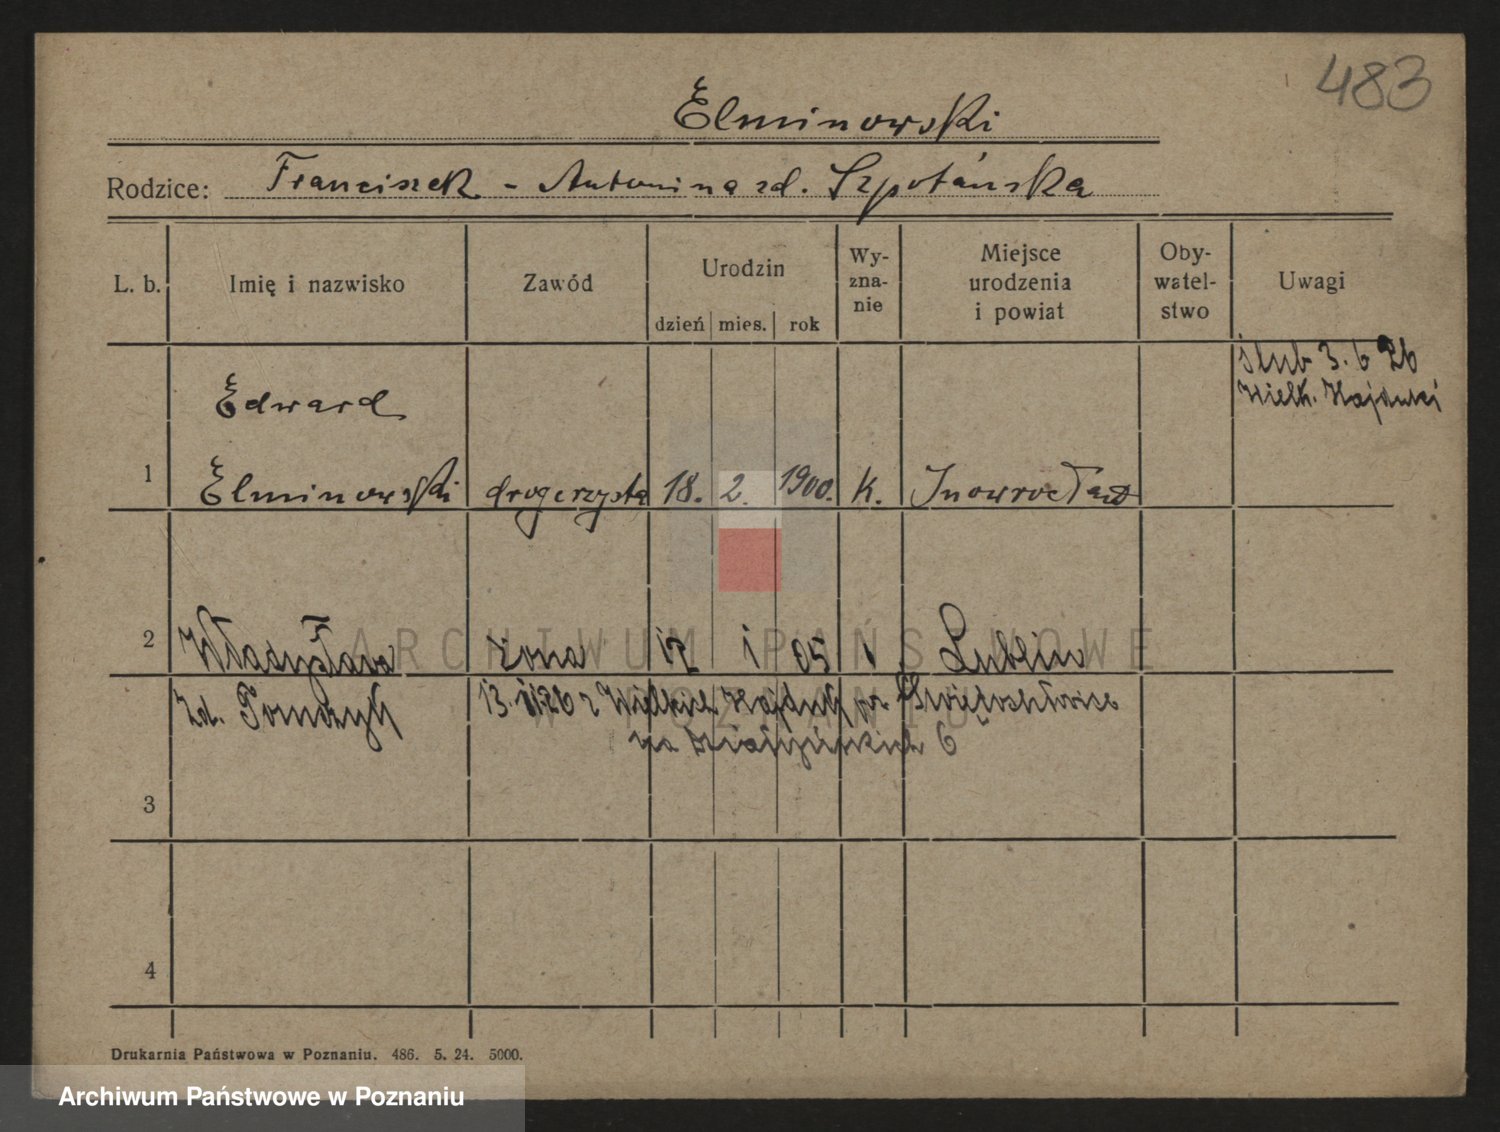 483
Elminowski
Rodzice: Franciszek - Antonina zd. Szpotańska
L. b. Imię i nazwisko Zawód Urodzin dzień mies. rok Wy-zna-nie Miejsce urodzenia i powiat Oby-watel-stwo Uwagi
ślub 3. 6 26
Wielk. Hajduki
Edward
1 Elminowski drogerzysta 18. 2. 1900. k. Inowrocław
2 Władysława żona 12 1 05 Lublin
zd. Tomczyk 13. 26 z Wielkich Hajduk Świętochłowice
na Działyńskich 6
3
4
ARCHIWUM PAŃSTWOWE
W POZNANIU
Drukarnia Państwowa w Poznaniu. 486. 5. 24. 5000.
Archiwum Państwowe w Poznaniu